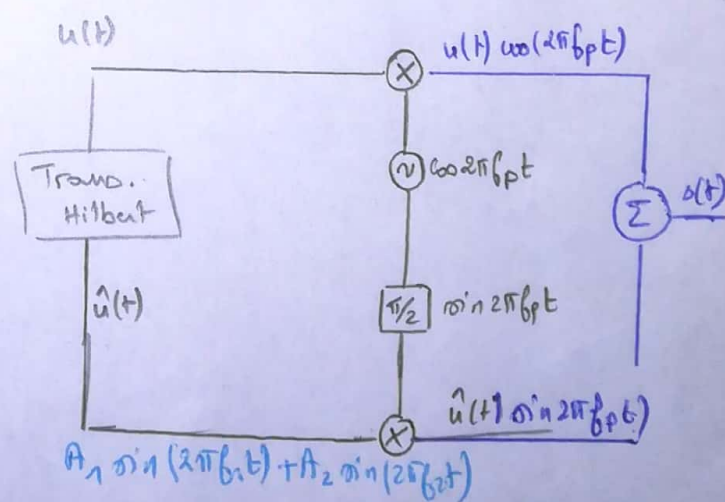 u(t)
u(t) cos(2πfpt)
Trans.
Hilbert
cos2πfpt
Σ
s(t)
û(t)
π/2
sin 2πfpt
û(t) sin 2πfpt)
A1 sin (2πf1t) + A2 sin(2πf2t)